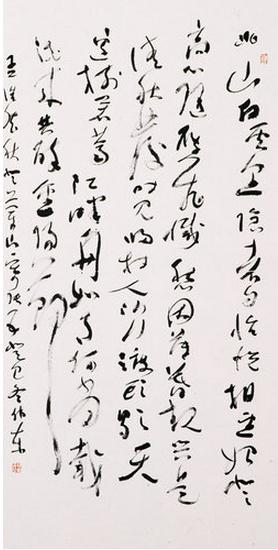 北山白云里隐者自怡悦相望始登
高心随雁飞灭愁因薄暮起兴是
清秋发时见归村人沙行渡头歇天
边树若荠江畔舟如月何当载
酒来共醉重阳节
孟浩然秋登兰山寄张五